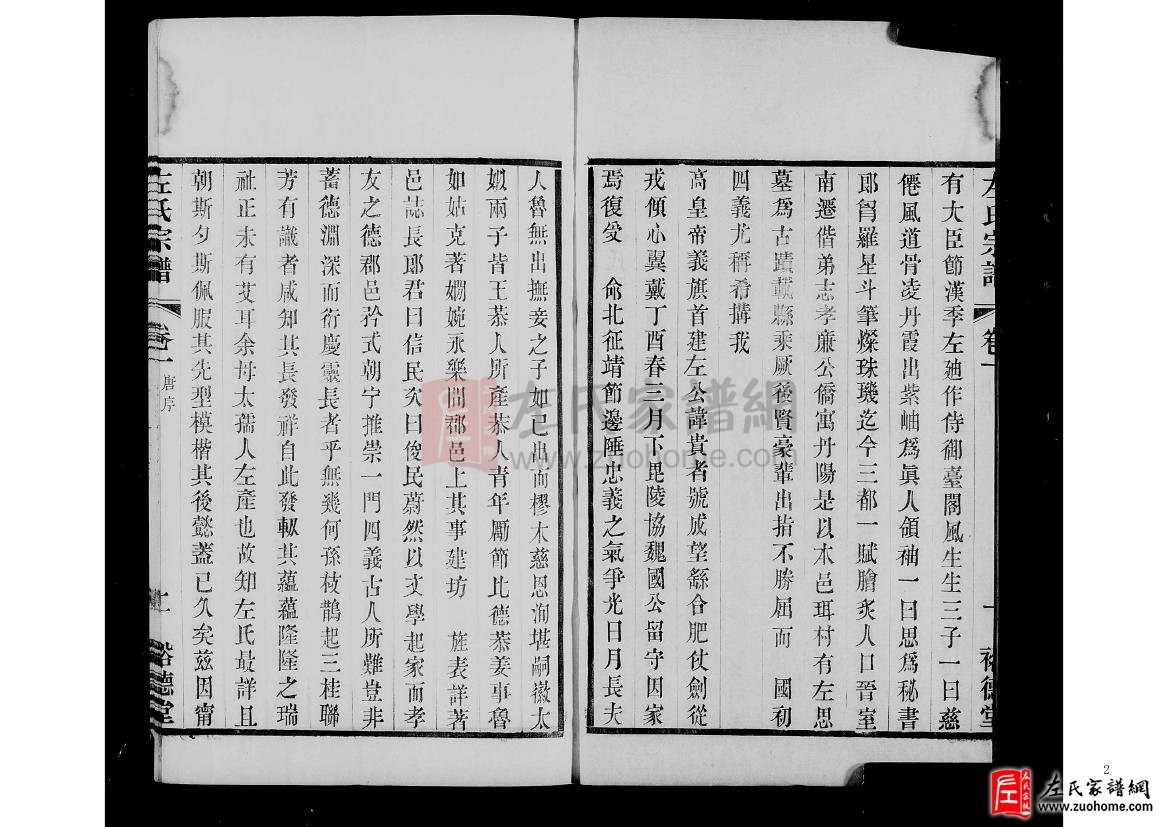 有大臣節漢季左廸作侍御臺閣風生生三子一曰慈
僊風道骨凌丹霞出紫岫爲眞人領袖一曰思爲秘書
郎胷羅星斗筆燦珠璣迄今三都一賦膾炙人口晉室
南遷偕弟志孝廉公僑寓丹陽是以本邑珥村有左思
墓爲古蹟載縣乘厥後賢豪輩出指不勝屈而 國初
四義尤稱希搆我
高皇帝義旗首建左公諱貴者號成望繇合肥仗劍從
戎傾心翼戴丁酉春三月下毘陵協魏國公留守因家
焉復受 命北征靖節邊陲忠義之氣爭光日月長夫
人魯無出撫妾之子如己出而樛木慈恩洵堪嗣徽太
姒兩子皆王恭人所產恭人青年勵節比德恭姜事魯
如姑克著嫺婉永樂間郡邑上其事建坊 旌表詳著
邑誌長郎君曰信民次曰俊民蔚然以文學起家而孝
友之德郡邑矜式朝宁推崇一門四義古人所難豈非
蓄德淵深而衍慶靈長者乎無幾何孫枝鵲起三桂聯
芳有識者咸知其長發祥自此發軔其蘊蘊隆隆之瑞
祉正未有艾耳余母太孺人左產也故知左氏最詳且
朝斯夕斯佩服其先型模楷其後懿葢已久矣茲因甯
左氏宗譜
卷一
唐序
裕德堂
左氏家譜網
www.zuohome.com
2
左氏家譜網
www.zuohome.com